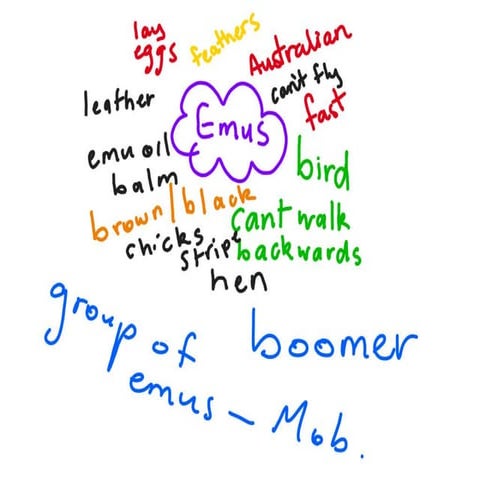 lay
eggs
feathers
Australian
can't fly
fast
leather
Emus
emu oil
balm
bird
brown/black
cant walk
backwards
chicks
stripe
hen
group of
emus - Mob.
boomer